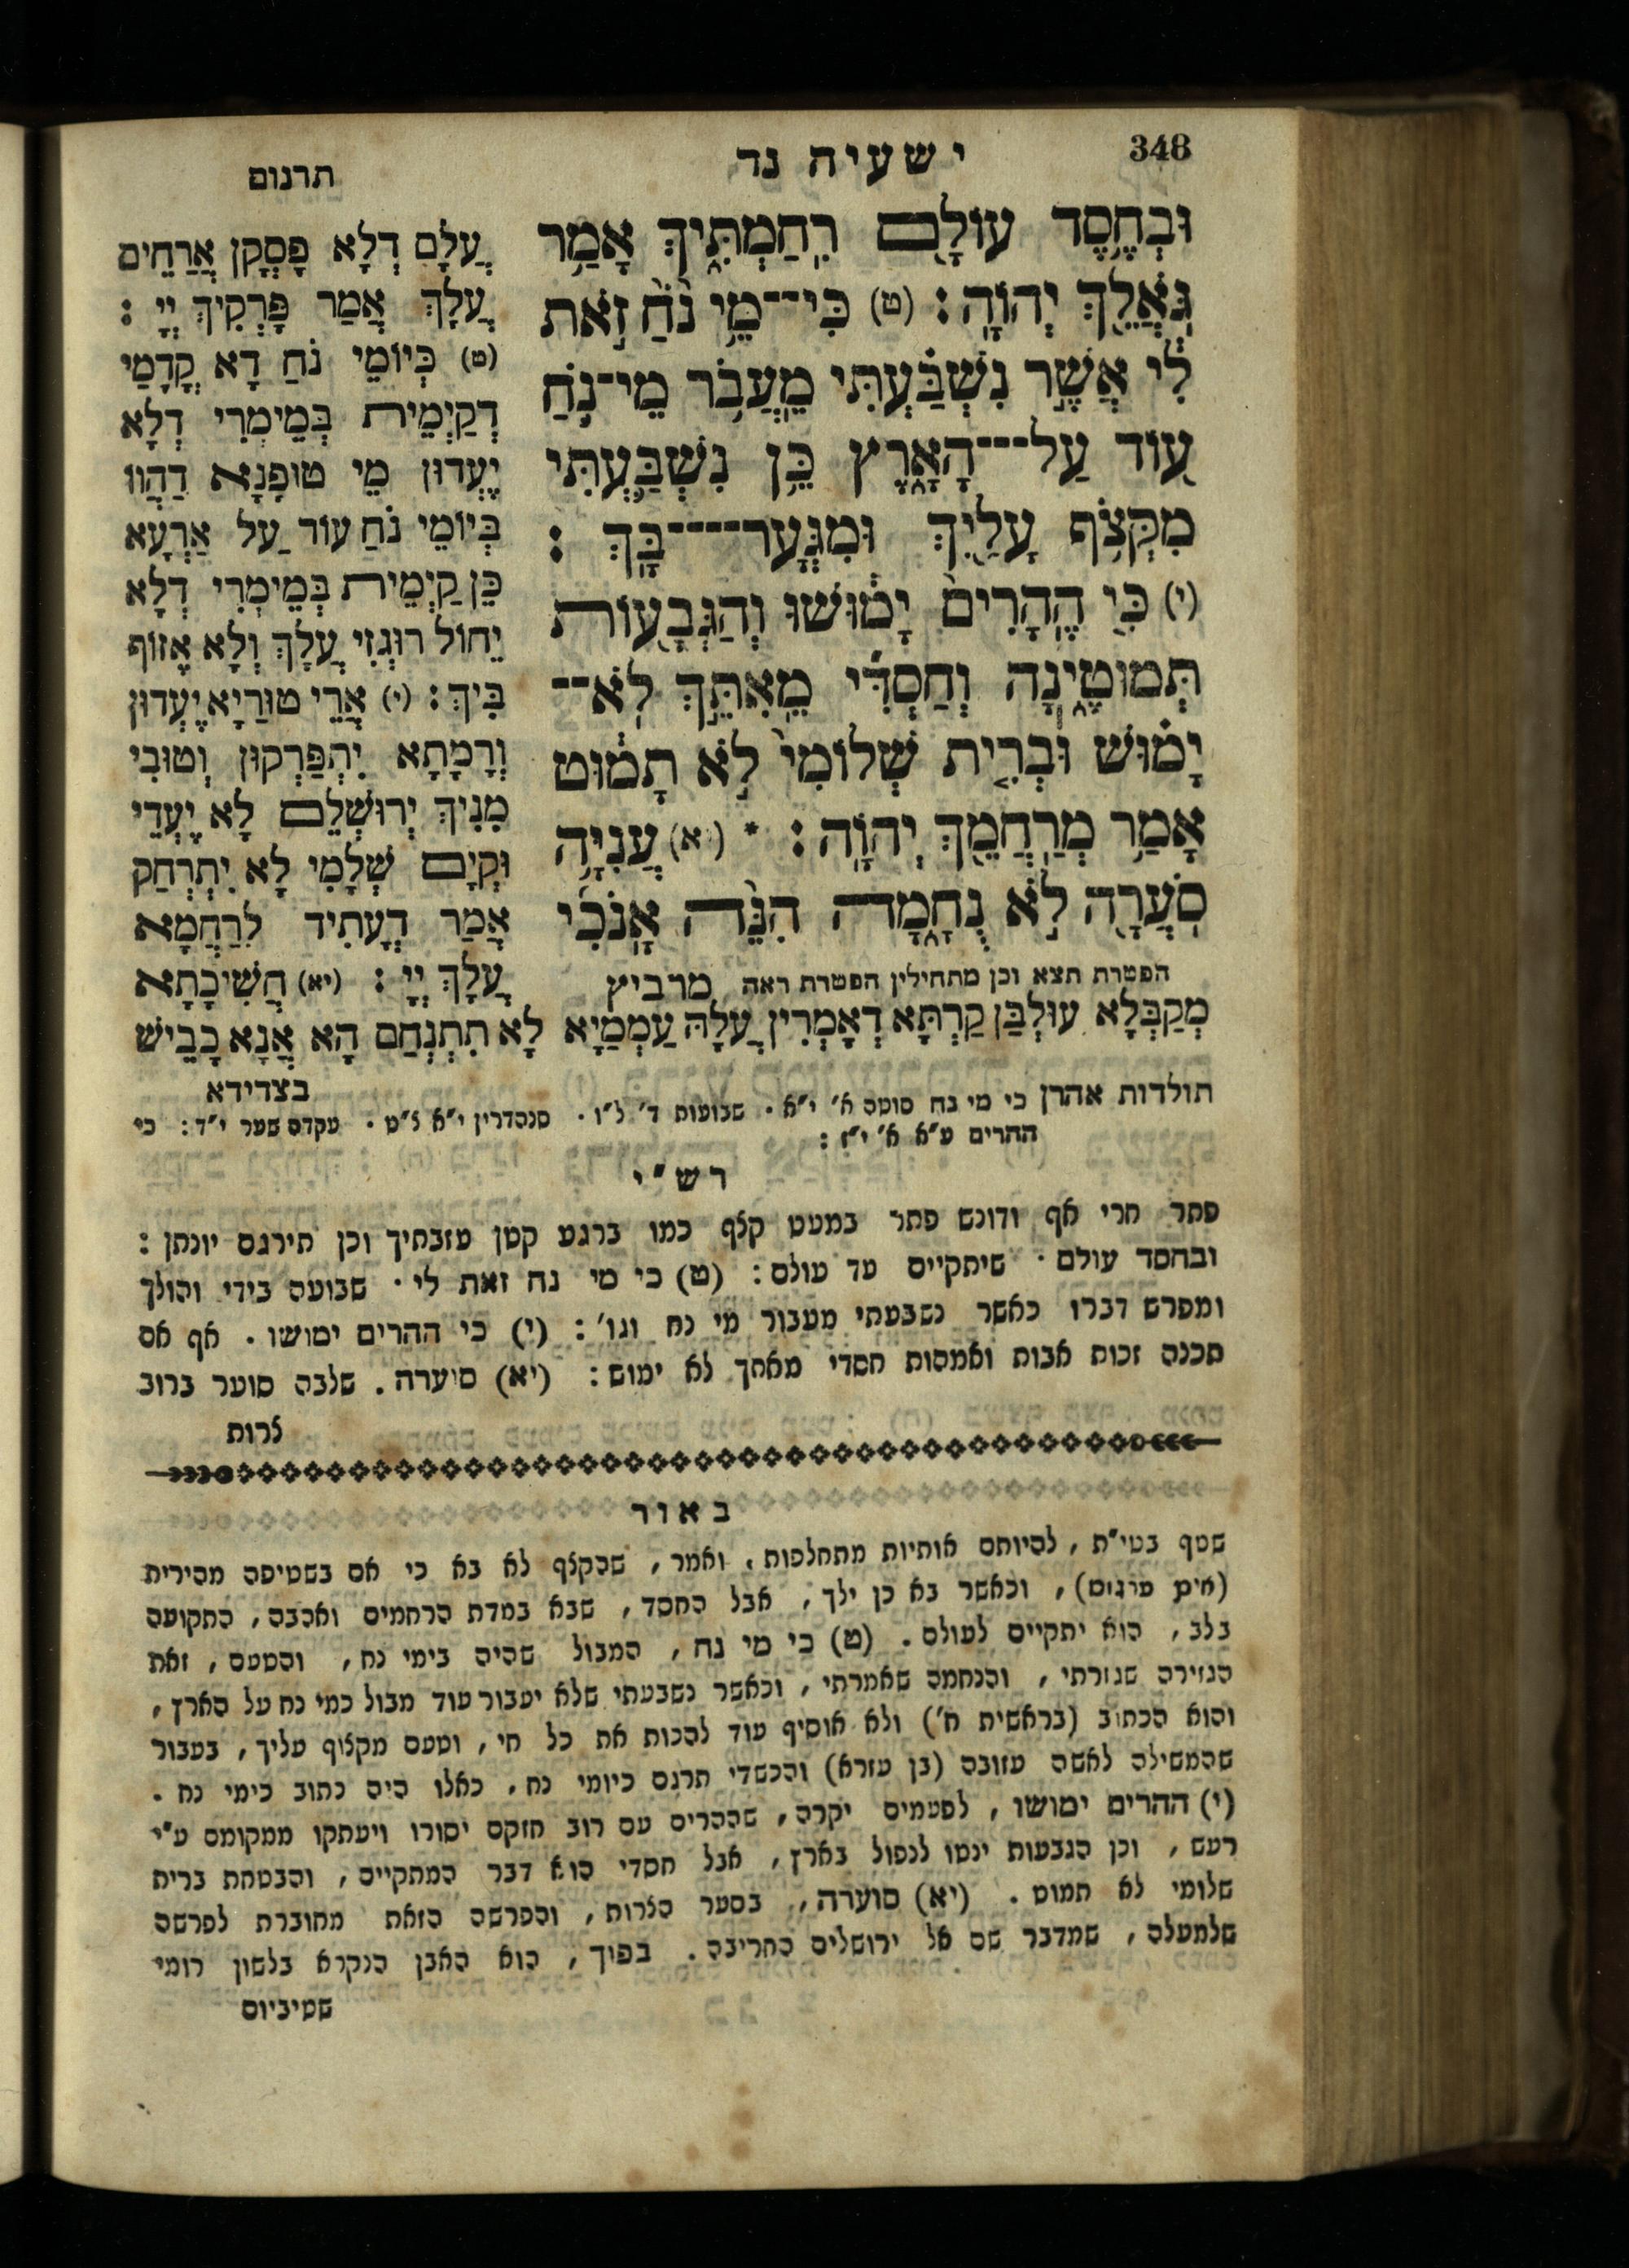 348
ישעיה נד
תרגום
וּבְחֶ֥סֶד עוֹלָ֖ם רִֽחַמְתִּ֑יךְ אָמַ֥ר
גֹּֽאֲלֵ֖ךְ יְהוָֹֽה׃ (ט) כִּי־־מֵ֥י נֹ֨חַ֙ זֹ֣את
לִ֔י אֲשֶׁ֣ר נִשְׁבַּ֗עְתִּי מֵֽעֲבֹ֥ר מֵי־נֹ֛חַ
ע֖וֹד עַל־־־הָאָ֑רֶץ כֵּ֥ן נִשְׁבַּ֛עְתִּי
מִקְּצֹ֥ף עָלַ֖יִךְ וּמִגְּעָר־־־־בָּֽךְ׃
(י) כִּ֤י הֶֽהָרִים֙ יָמ֔וּשׁוּ וְהַגְּבָע֖וֹת
תְּמוּטֶ֑ינָה וְחַסְדִּ֞י מֵֽאִתֵּ֣ךְ לֹֽא־־
יָמ֗וּשׁ וּבְרִ֤ית שְׁלוֹמִי֙ לֹ֣א תָמ֔וּט
אָמַ֥ר מְרַֽחֲמֵ֖ךְ יְהוָֹֽה׃ * (יא) עֲנִיָּ֥ה
סֹֽעֲרָ֖ה לֹ֣א נֻחָ֑מָה הִנֵּ֨ה אָֽנֹכִ֜י
הפטרת תצא וכן מתחילין הפטרת ראה מרביץ
עֲלָם דְלָא פָסְקָן אֲרַחֵים
עֲלָךְ אֲמַר פָּרְקִיךְ יְיָ׃
(ט) כְּיוֹמֵי נֹחַ דָא קֳדָמַי
דְקַיְמֵית בְּמֵימְרִי דְלָא
יֶעְדוּן מֵי טוֹפָנָא דַהֲווֹ
בְּיוֹמֵי נֹחַ עוֹד עַל אַרְעָא
כֵּן קַיְמֵית בְּמֵימְרִי דְלָא
יֵחוֹל רוּגְזִי עֲלָךְ וְלָא אֱזוֹף
בִּיךְ׃ (י) אֲרֵי טוּרַיָא יֶעְדוּן
וְרָמָתָא יִתְפַּרְקוּן וְטוּבִי
מִנִיךְ יְרוּשְׁלֵם לָא יֶעְדֵי
וּקְיָם שְׁלָמִי לָא יִתְרְחַק
אֲמַר דְעָתִיד לְרַחֲמָא
עֲלָךְ יְיָ׃ (יא) חֲשִׁיכָתָא
מְקַבְּלָא עוּלְבַּן קַרְתָּא דְאָמְרִין עֲלָהּ עַמְמַיָא לָא תִתְנְחַם הָא אֲנָא כָבֵישׁ
בצדידא
תולדות אהרן כי מי נח סוטה א׳ י״א · שבועות ד׳ ל״ו · סנהדרין י״א ל״ט · עקדה שער י״ד: כי
ההרים ע״א א׳ י״ז:
רש״י
פתר חרי אף ודונש פתר במעט קצף כמו ברגע קטן עזבתיך וכן תירגם יונתן:
ובחסד עולם · שיתקיים עד עולם: (ט) כי מי נח זאת לי · שבועה בידי והולך
ומפרש דברו כאשר נשבעתי מעבור מי נח וגו׳: (י) כי ההרים ימושו · אף אם
תכלה זכות אבות ואמהות חסדי מאתך לא ימוש: (יא) סוערה. שלבה סוער ברוב
צרות
באור
שטף בטי״ת, להיותם אותיות מתחלפות, ואמר, שהקצף לא בא כי אם בשטיפה מהירית
וכאשר בא כן ילך, אבל החסד, שבא במדת הרחמים ואהבה, התקועה
בלב, הוא יתקיים לעולם. (ט) כי מי נח, המבול שהיה בימי נח, והטעם, זאת
הגזירה שגזרתי, והנחמה שאמרתי, וכאשר נשבעתי שלא יעבור עוד מבול כמי נח על הארץ,
והוא הכתוב (בראשית ח׳) ולא אוסיף עוד להכות את כל חי, וטעם מקצוף עליך, בעבור
שהמשילה לאשה עזובה (בן עזרא) והכשדי תרגם כיומי נח, כאלו היה כתוב כימי נח.
(י) ההרים ימושו, לפעמים יקרה, שההרים עם רוב חזקם יסורו ויעתקו ממקומם ע״י
רעש, וכן הגבעות ינטו לנפול בארץ, אבל חסדי הוא דבר המתקיים, והבטחת ברית
שלומי לא תמוט. (יא) סוערה, בסער הצרות, והפרשה הזאת מחוברת לפרשה
שלמעלה, שמדבר שם אל ירושלים החריבה. בפוך, הוא האבן הנקרא בלשון רומי
שטיביום